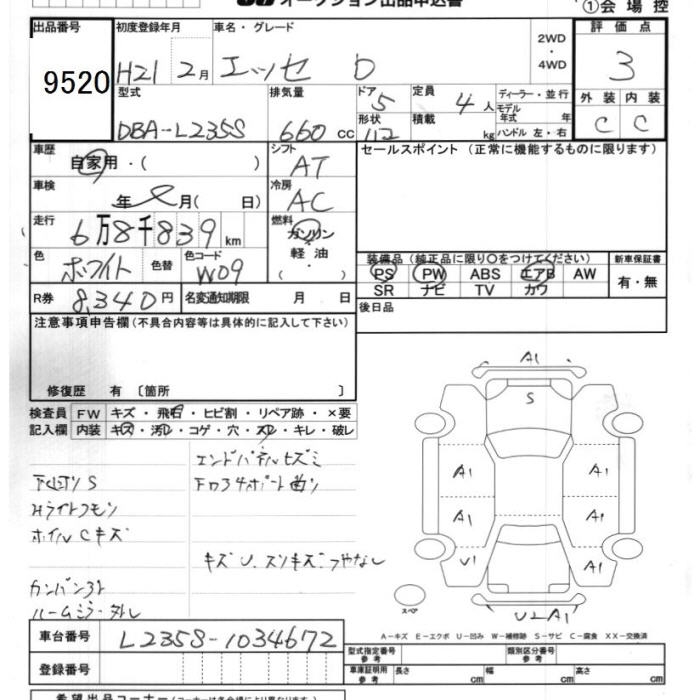 オークション出品申込書
①会場控
出品番号 初度登録年月 車名・グレード 評価点
9520 H21 2月 エッセ D 2WD・4WD 3
型式 排気量 ドア 5 定員 4人 ディーラー・並行 外装 内装
DBA-L235S 660cc 形状 112 積載 kg モデル年式 年 C C
ハンドル 左・右
車歴 自家用・( ) シフト AT セールスポイント (正常に機能するものに限ります)
車検 年 月( 日) 冷房 AC
走行 6万8千839km 燃料 ガソリン・軽油・( )
色 ホワイト 色替 色コード W09
装備品 (純正品に限り○をつけてください) 新車保証書
PS PW ABS エアB AW 有・無
SR ナビ TV カワ
R券 8,340円 名変通知期限 月 日 後日品
注意事項申告欄(不具合内容等は具体的に記入して下さい)
修復歴 有 〔箇所 〕
検査員 FW キズ・飛石・ヒビ割・リペア跡・×要
記入欄 内装 キズ・汚れ・コゲ・穴・スレ・キレ・破レ
エンドパネルヒズミ
下回りS Fロアサポート曲り
Hライトクモン
ホイルCキズ
キズU.スリキズ.つやなし
カンバン3ト
ルームミラー外し
A1
S
A1 A1
A1 A1
U1 A1
スペア
U2A1
A-キズ E-エクボ U-凹み W-補修跡 S-サビ C-腐食 XX-交換済
車台番号 L235S-1034672 型式指定番号 参考 類別区分番号 参考
登録番号 車庫証明用 参考 長さ cm 幅 cm 高さ cm
希望出品コーナー(コーナーは各会場により異なります)